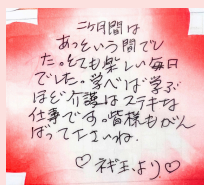 二ヶ月間は
あっという間でし
た。とても楽しい毎日
でした。学べば学ぶ
ほど介護はステキな
仕事です。皆様もがん
ばって下さいね。
♡ より♡